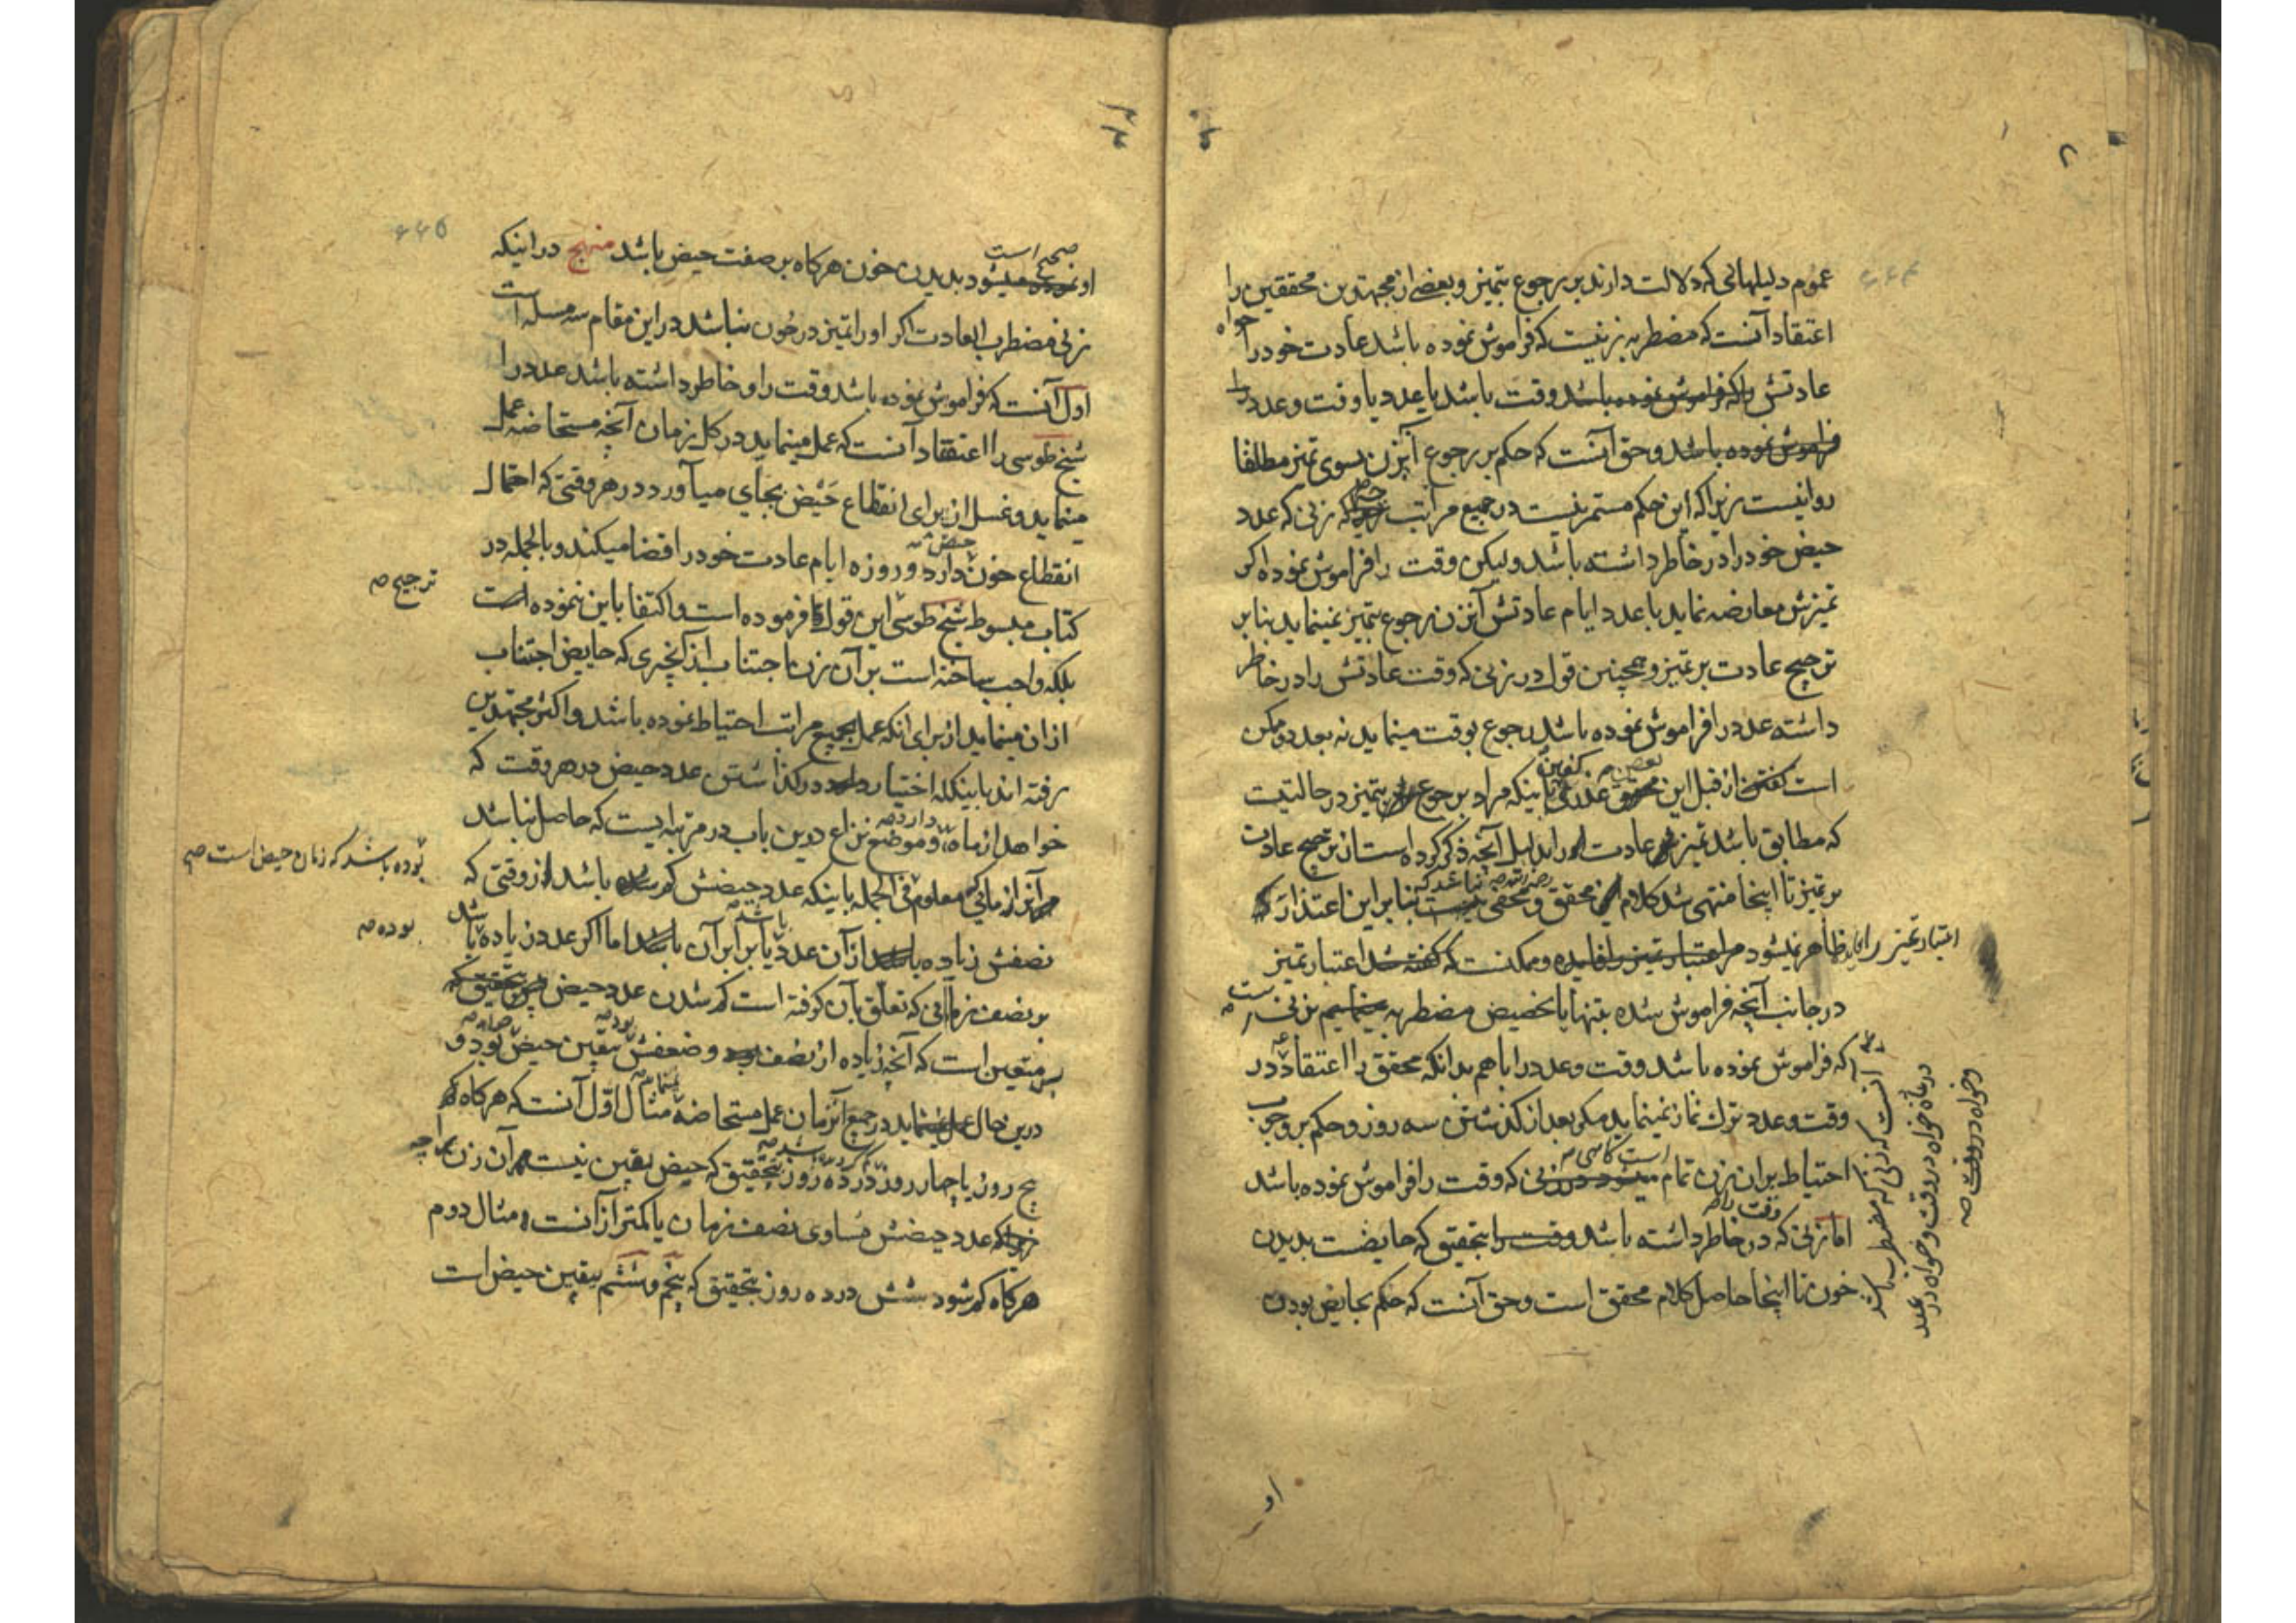 عموم دلیلهائی که دلالت دارند بر رجوع بتمیز و بعضی از مجتهدین محققین را
اعتقاد آنست که مضطربه زنیست که فراموش نموده باشد عادت خود را خواه
عادتش را که فراموش نموده باشد وقت باشد یا عدد یا وقت و عدد را
فراموش نموده باشد و حق آنست که حکم بر رجوع آنزن بسوی تمیز مطلقا
روا نیست زیرا که این حکم مستمر نیست در جمیع مراتب که زنی که عدد
حیض خود را در خاطر داشته باشد ولیکن وقت را فراموش نموده اکر
تمیزش معارضه نماید با عدد ایام عادتش آنزن رجوع بتمیز نمینماید بنابر
ترجیح عادت بر تمیز و همچنین قول در زنی که وقت عادتش را در خاطر
داشته عدد را فراموش نموده باشد رجوع بوقت مینماید نه بعدد و ممکن
است کفتن از قبل این بعضی باینکه مراد برجوع بتمیز در حالتیست
که مطابق باشد تمیز عادت را بدلیل آنچه ذکر کرده است از ترجیح عادت
بر تمیز تا اینجا منتهی شد کلام محقق و مخفی نباشد که بنابر این اعتذار
اعتبار تمیز را فایده ظاهر نمیشود مر اعتبار تمیز را فایده و ممکنست که کفته شد اعتبار تمیز
در جانب آنچه فراموش شده بتنها یا تخصیص مضطربه بزنی است
که فراموش نموده باشد وقت و عدد را با هم بدانکه محقق را اعتقاد در
وقت و عدد ترک نماز نمینماید مکر بعد از کذشتن سه روز و حکم بر وجوب
احتیاط بر ان زن تمام است کاهی زنی که وقت را فراموش نموده باشد
اما زنی که در خاطر داشته باشد وقت را بتحقیق که حایضست بدیدن
خون تا اینجا حاصل کلام محقق است و حق آنست که حکم بحایض بودن
آنست که زنی که مضطرب باشد
در عادة خواه در وقت و خواه در عدد
و خواه در وقت صه
او
صحیح است
او نموده میشود بدیدن خون هرکاه بر صفت حیض باشد منهج در اینکه
زنی مضطرب العادت اکر او را تمیز در خون نباشد در این مقام سه مسله است
اول آنست که فراموش نموده باشد وقت را و خاطر داشته باشد عدد را
شیخ طوسی را اعتقاد آنست که عمل مینماید در کل زمان آنچه مستحاضه عمل
مینماید و غسل از برای انقطاع حیض بجای میآورد در هر وقتی که احتمال
انقطاع خون حیض دارد و روزه ایام عادت خود را قضا میکند و بالجمله در
کتاب مبسوط شیخ طوسی این قول را فرموده است و اکتفا باین ننموده است
ترجیح صه
بلکه واجب ساخته است بر آن زن اجتناب از آنچیزی که حایض اجتناب
از ان مینماید از برای انکه عمل بجمیع مراتب احتیاط نموده باشد و اکثر مجتهدین
رفته اند باینکه اختیار دارد در کذاشتن عدد حیض در هر وقت که
خواهد از ماه و موضع نزاع درین باب در مرتبه ایست که حاصل نباشد
آنزن را زمانی معلوم فی الجمله باینکه عدد حیضش کم باشد از وقتی که
بوده باشد که زمان حیض است صه
نصفش زیاده باشد از آن عدد یا برابر آن باشد اما اکر عدد زیاده باشد
بوده صه
بر نصف زمانی که تعلق بآن کرفته است کم شدن عدد حیض پس بتحقیق که
متعین است که آنچه زیاده از نصف بود و ضعفش بیقین حیض بود و
درین حال عمل مینماید در جمیع آنزمان عمل مستحاضه مثال اول آنست که هرکاه
پنج روز یا چهار روز در ده روز بتحقیق که حیض بیقین نیست مر آن زن را چه
عدد حیضش مساوی نصف زمان یا کمتر از آنست و مثال دوم
هرکاه کم شود شش در ده روز بتحقیق که پنجم و ششم بیقین حیض است